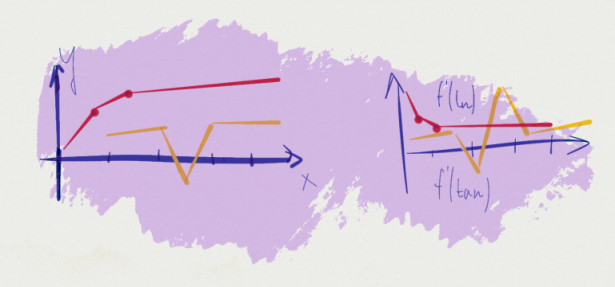 y
x
f'(ln)
f'(tan)